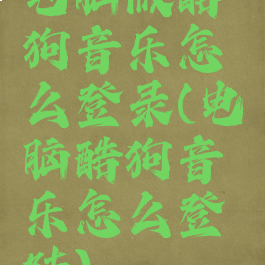 电脑版酷
狗音乐怎
么登录(电
脑酷狗音
乐怎么登
陆)